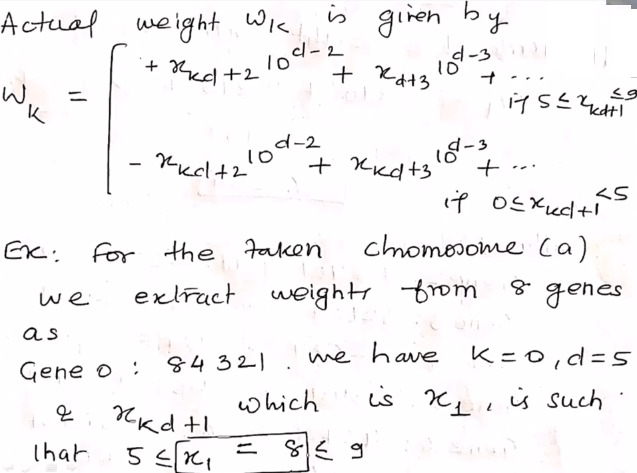 Actual weight Wk is given by
Wk = + xkd+2 10^d-2 + xd+3 10^d-3 + ... if 5 ≤ xkd+1 ≤ 9
- xkd+2 10^d-2 + xkd+3 10^d-3 + ...
if 0 ≤ xkd+1 < 5
Ex: for the taken chromosome (a)
we extract weights from 8 genes
as
Gene 0 : 84321. we have K=0, d=5
& xkd+1 which is x1, is such
that 5 ≤ x1 = 8 ≤ 9